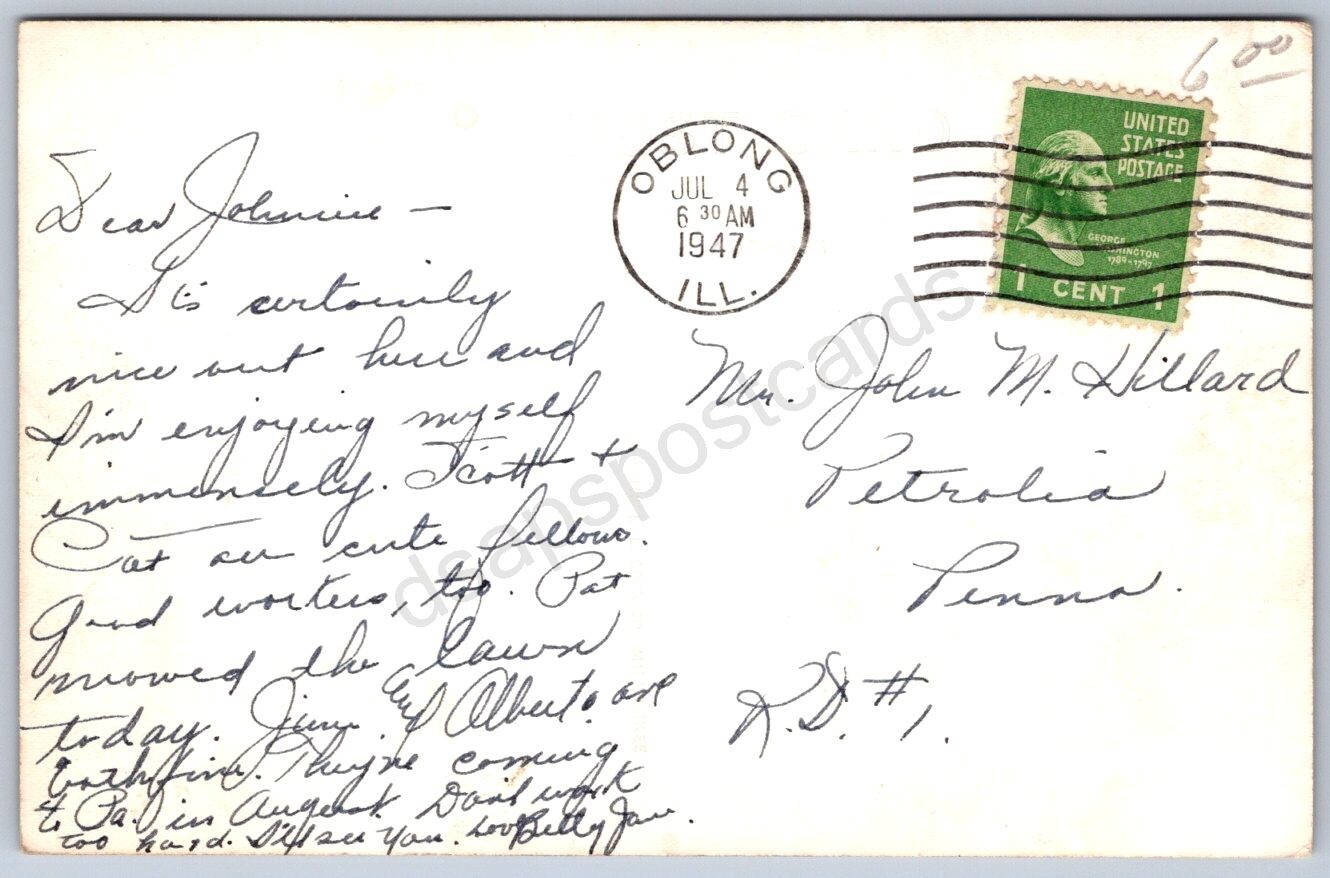 6 00
UNITED
STATES
POSTAGE
GEORGE
WASHINGTON
1789-1797
1 CENT 1
OBLONG
JUL 4
6 30 AM
1947
ILL.
Dear Johnnie —
It's certainly
nice out here and
I'm enjoying myself
immensely. Scott +
Pat are cute fellows.
Good workers, too. Pat
mowed the lawn
today. June and Alberta are
both fine. They're coming
to Pa. in August. Don't work
too hard. I'll see you. Love Betty Jane.
Mr. John M. Hillard
Petrolia
Penna.
R.D. #1.
dsapspostcards